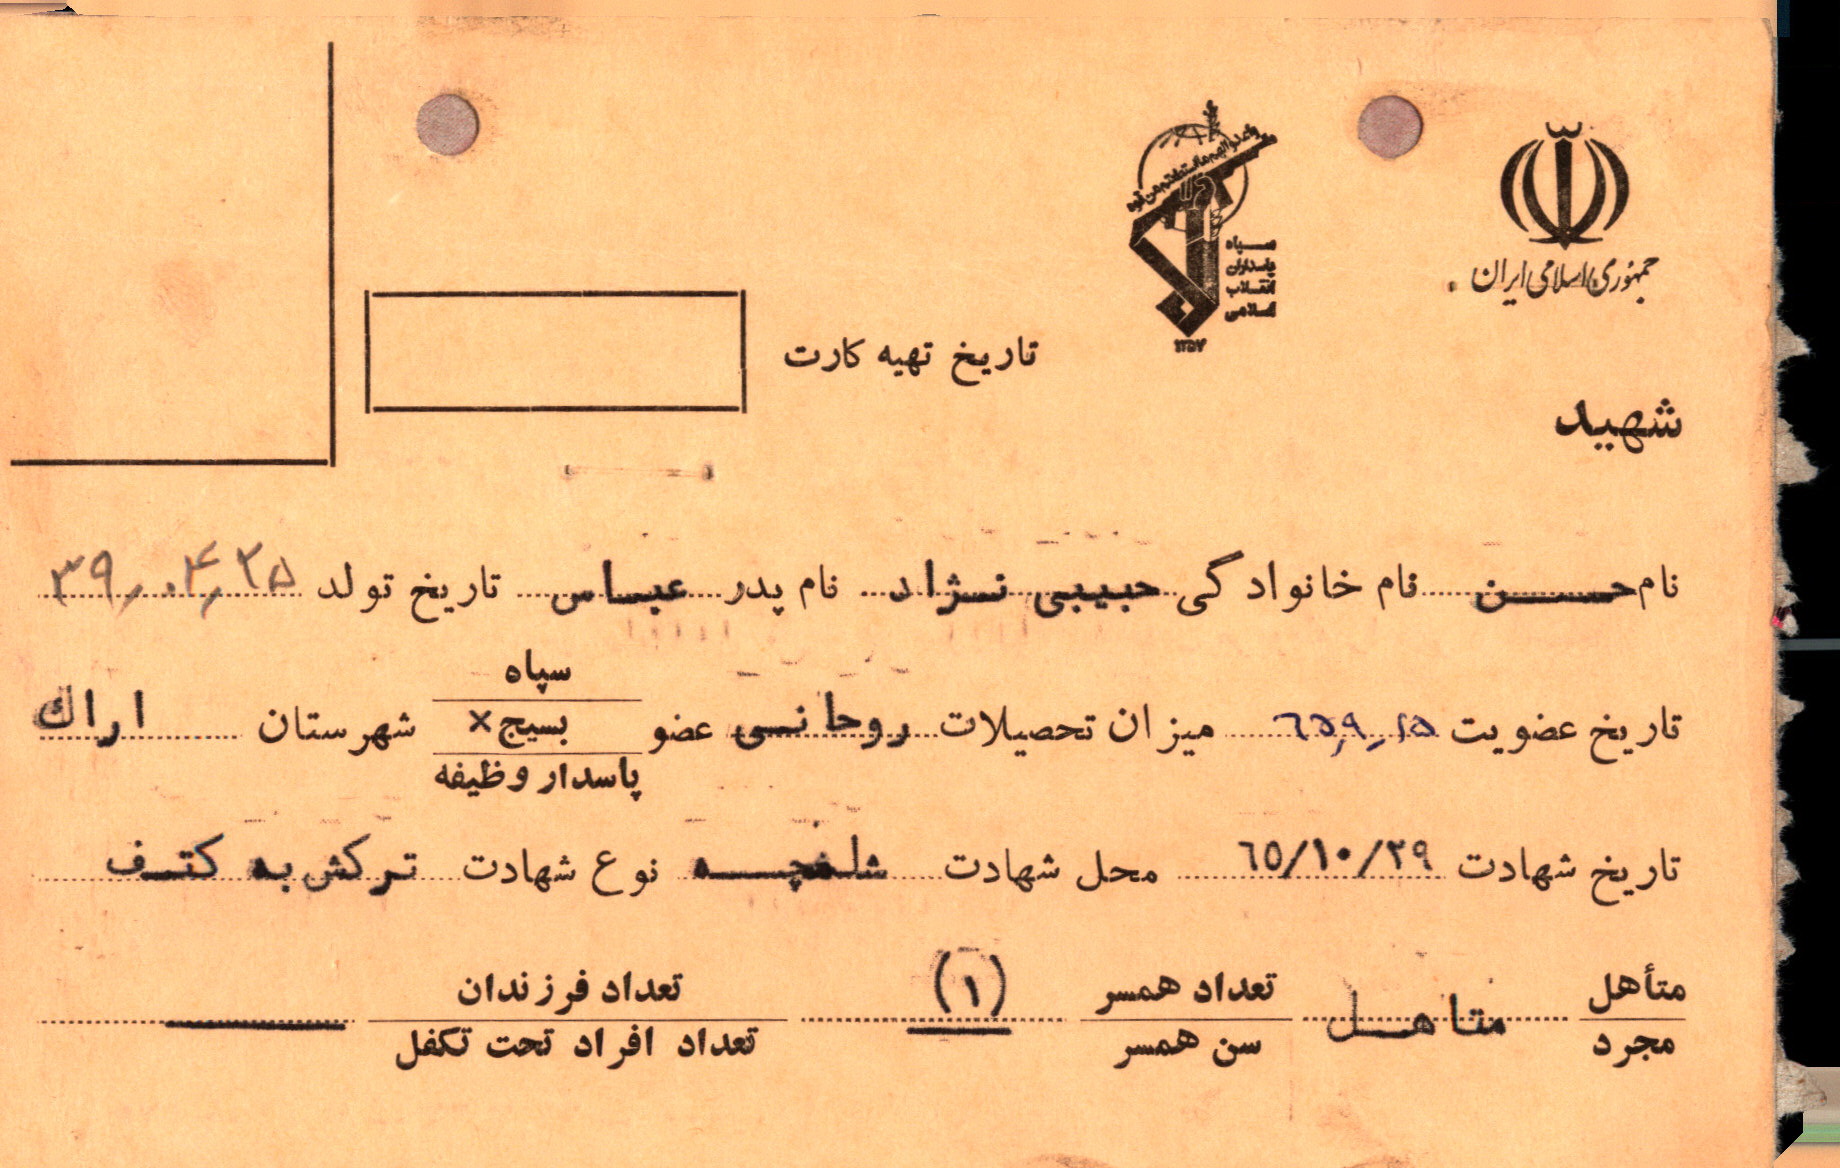 جمهوری اسلامی ایران
سپاه
پاسداران
انقلاب
اسلامی
۱۳۵۷
تاریخ تهیه کارت
شهید
نام حسن نام خانوادگی حبیبی نژاد نام پدر عباس تاریخ تولد ۳۹,۰۴,۲۵
سپاه
تاریخ عضویت ٦٥,۹,۱۵ میزان تحصیلات روحانی عضو بسیج × شهرستان اراک
پاسدار وظیفه
تاریخ شهادت ٦٥/۱۰/۲۹ محل شهادت شلمچه نوع شهادت ترکش به کتف
متأهل متاهل تعداد همسر (۱) تعداد فرزندان
مجرد سن همسر تعداد افراد تحت تکفل